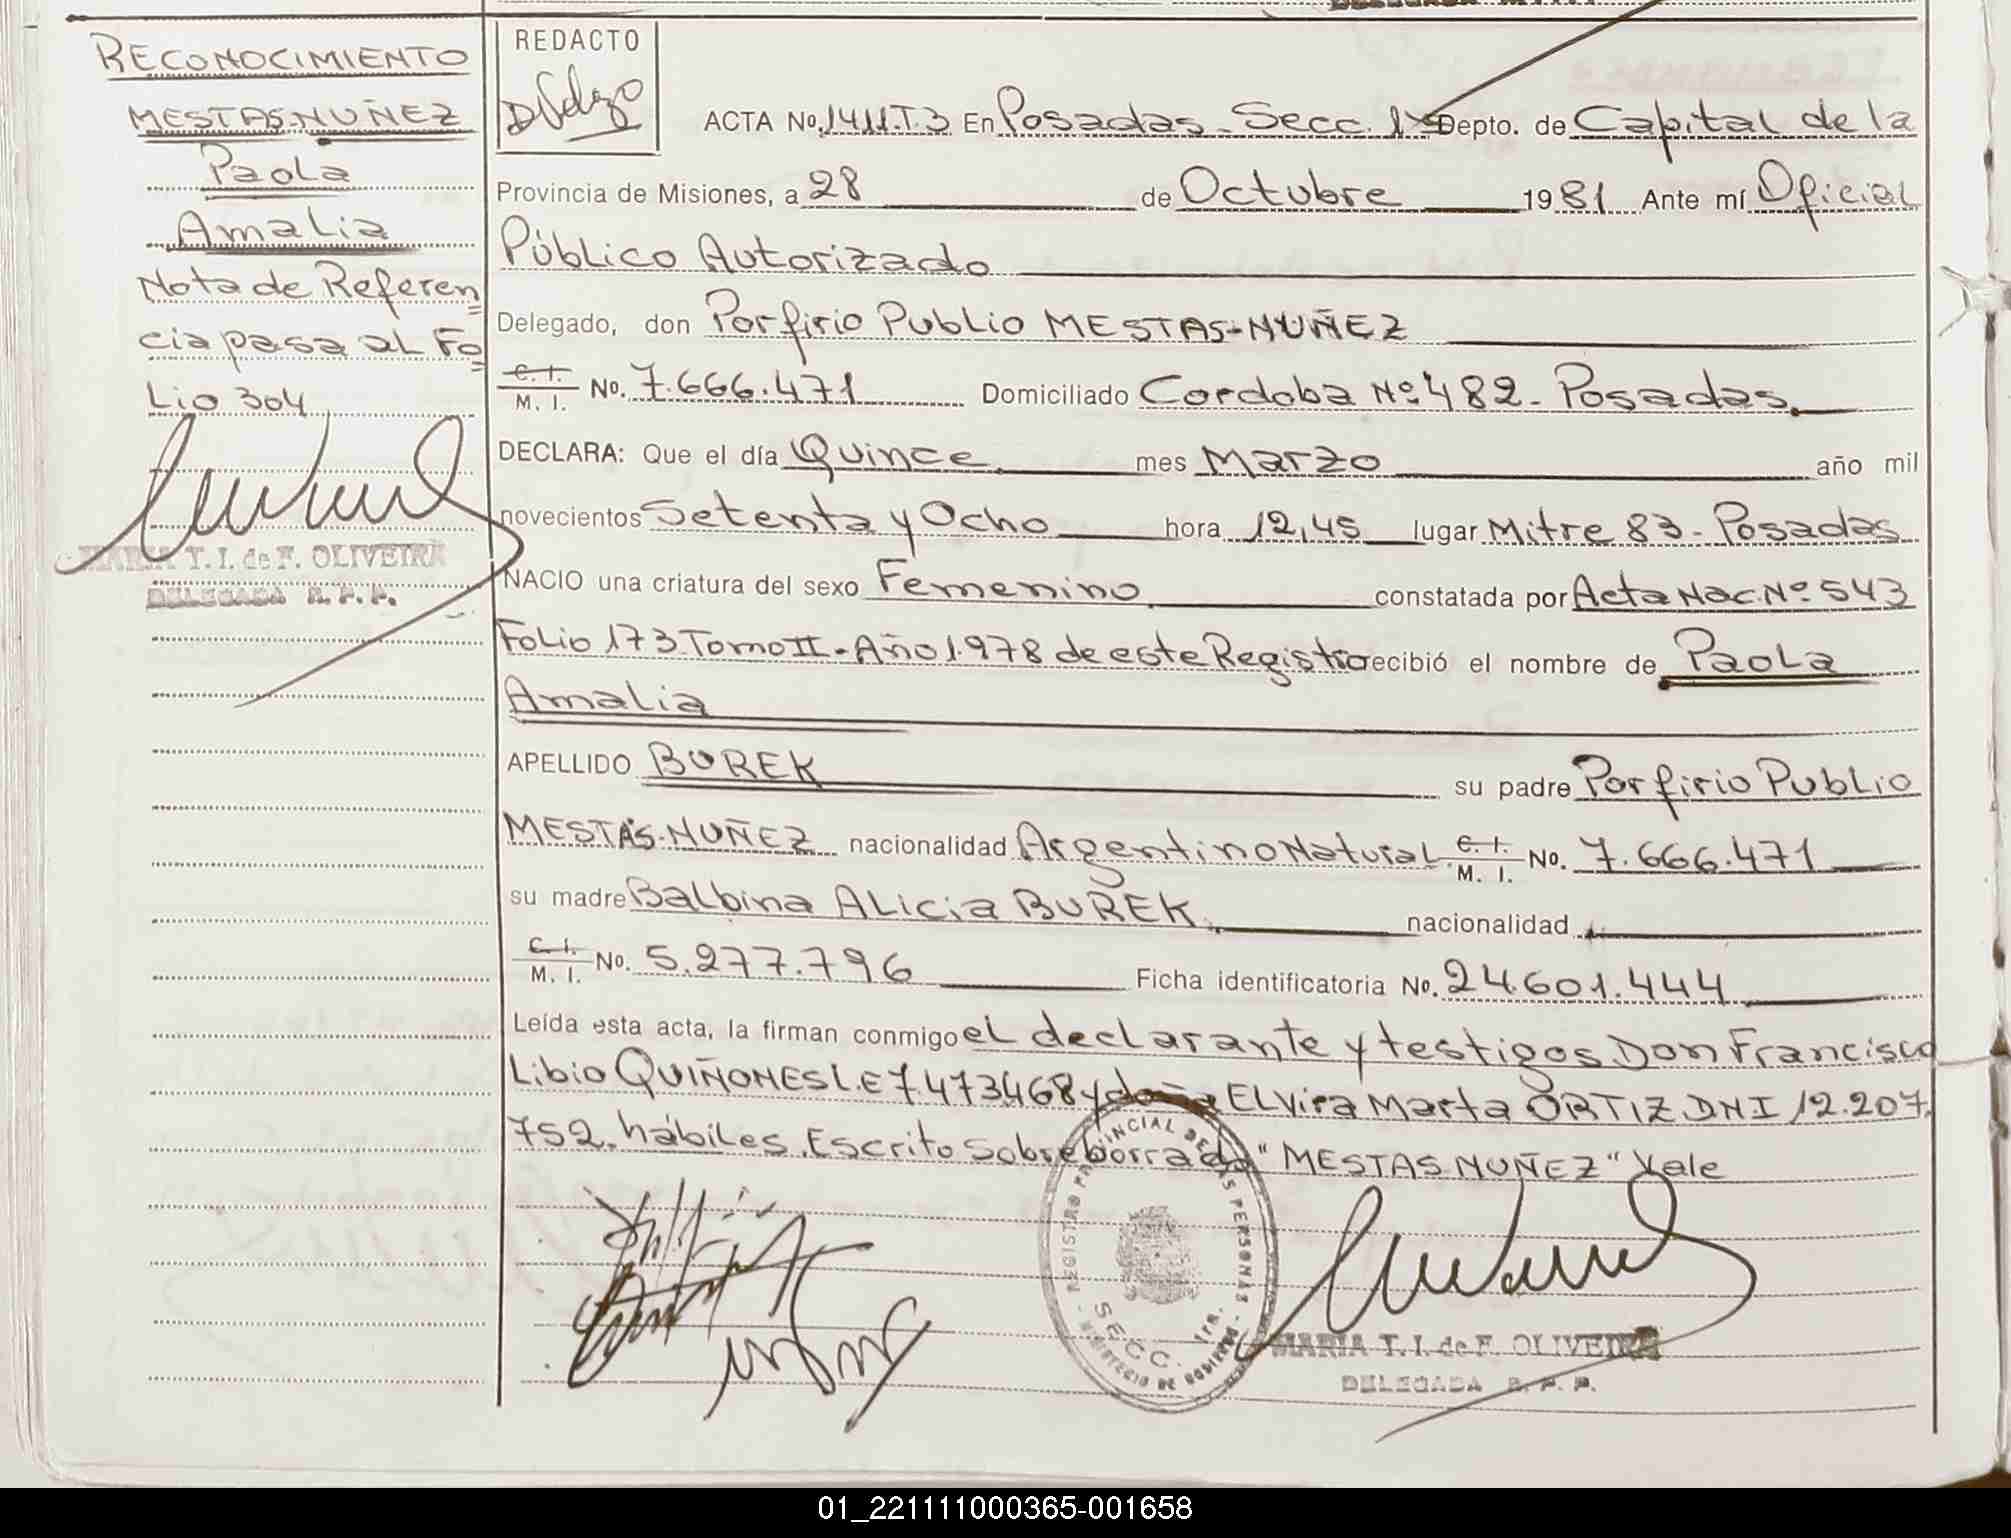 RECONOCIMIENTO
MESTAS-NUÑEZ
Paola
Amalia
Nota de Referen
cia pasa al Fo
Lio 304
MARIA T. I. de F. OLIVEIRA
DELEGADA R. P. P.
REDACTO
ACTA No. 1411.T.3 En Posadas - Secc. 1ª Depto. de Capital de la
Provincia de Misiones, a 28 de Octubre 1981 Ante mí Oficial
Público Autorizado
Delegado, don Porfirio Publio MESTAS-NUÑEZ
C. I. M. I. No. 7.666.471 Domiciliado Cordoba Nº 482 - Posadas.
DECLARA: Que el día Quince mes Marzo año mil
novecientos Setenta y Ocho hora 12,45 lugar Mitre 83 - Posadas
NACIO una criatura del sexo Femenino constatada por Acta Nac. Nº 543
Folio 173 Tomo II - Año 1.978 de este Registro recibió el nombre de Paola
Amalia
APELLIDO BUREK su padre Porfirio Publio
MESTAS-NUÑEZ nacionalidad Argentino Natural C. I. M. I. No. 7.666.471
su madre Balbina Alicia BUREK nacionalidad
C. I. M. I. No. 5.277.796 Ficha identificatoria No. 24.601.444
Leída esta acta, la firman conmigo el declarante y testigos Don Francisco
Libio QUIÑONES L.E 7.473.468 y doña ELvira Marta ORTIZ DNI 12.207.
752. hábiles. Escrito Sobreborrado "MESTAS NUÑEZ" Vale
REGISTRO PROVINCIAL DE LAS PERSONAS
SECC. 1RA.
MINISTERIO DE GOBIERNO
MARIA T. I. de F. OLIVEIRA
DELEGADA R. P. P.
01_221111000365-001658